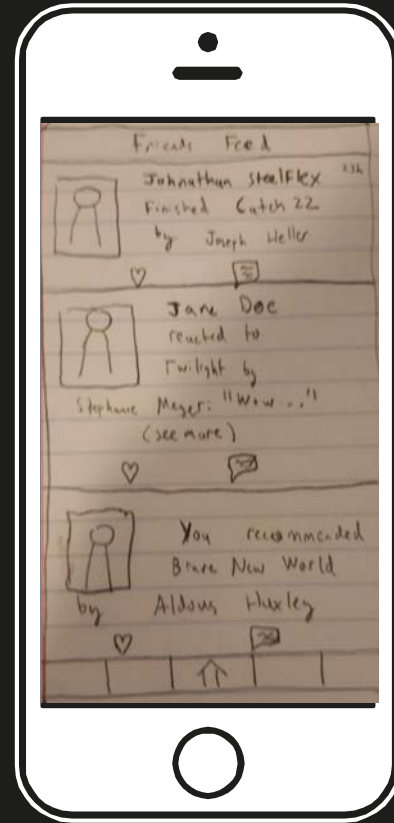 Friends Feed
Johnathan SteelFlex 23h
Finished Catch 22
by Joseph Heller
Jane Doe
reacted to
Twilight by
Stephanie Meyer: "Wow..."
(see more)
You recommended
Brave New World
by Aldous Huxley